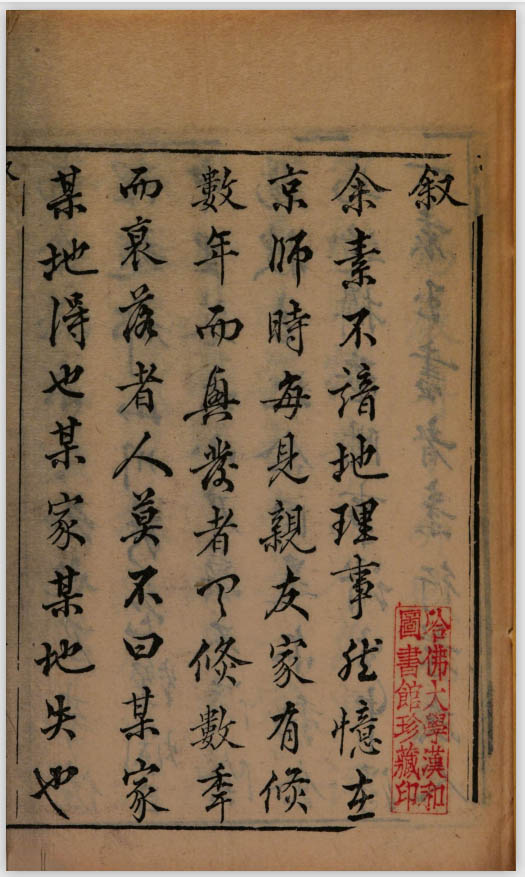 叙
余素不諳地理事然憶在
京師時每見親友家有倐
數年而興發者倐數秊
而衰落者人莫不曰某家
某地得也某家某地失也
哈佛大學漢和
圖書館珍藏印